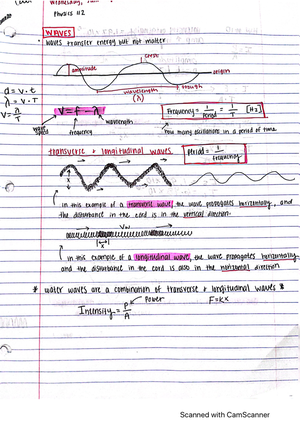 Wednesday,
Physics HZ
WAVES
• waves transfer energy but not matter.
crest
amplitude
origin
trough
wavelength
(λ)
d = v · t
λ = v · T
V = λ/T
V = f · λ
wave speed
frequency
wavelength
Frequency = 1/period = 1/T [Hz]
how many oscillations in a period of time.
transverse & longitudinal waves
Period = 1/frequency
in this example of a transverse wave, the wave propagates horizontally, and
the disturbance in the cord is in the vertical direction.
Vw
x
in this example of a longitudinal wave, the wave propagates horizontally
and the disturbance in the cord is also in the horizontal direction
* water waves are a combination of transverse & longitudinal waves *
Intensity = P/A
Power
F=kx
Scanned with CamScanner